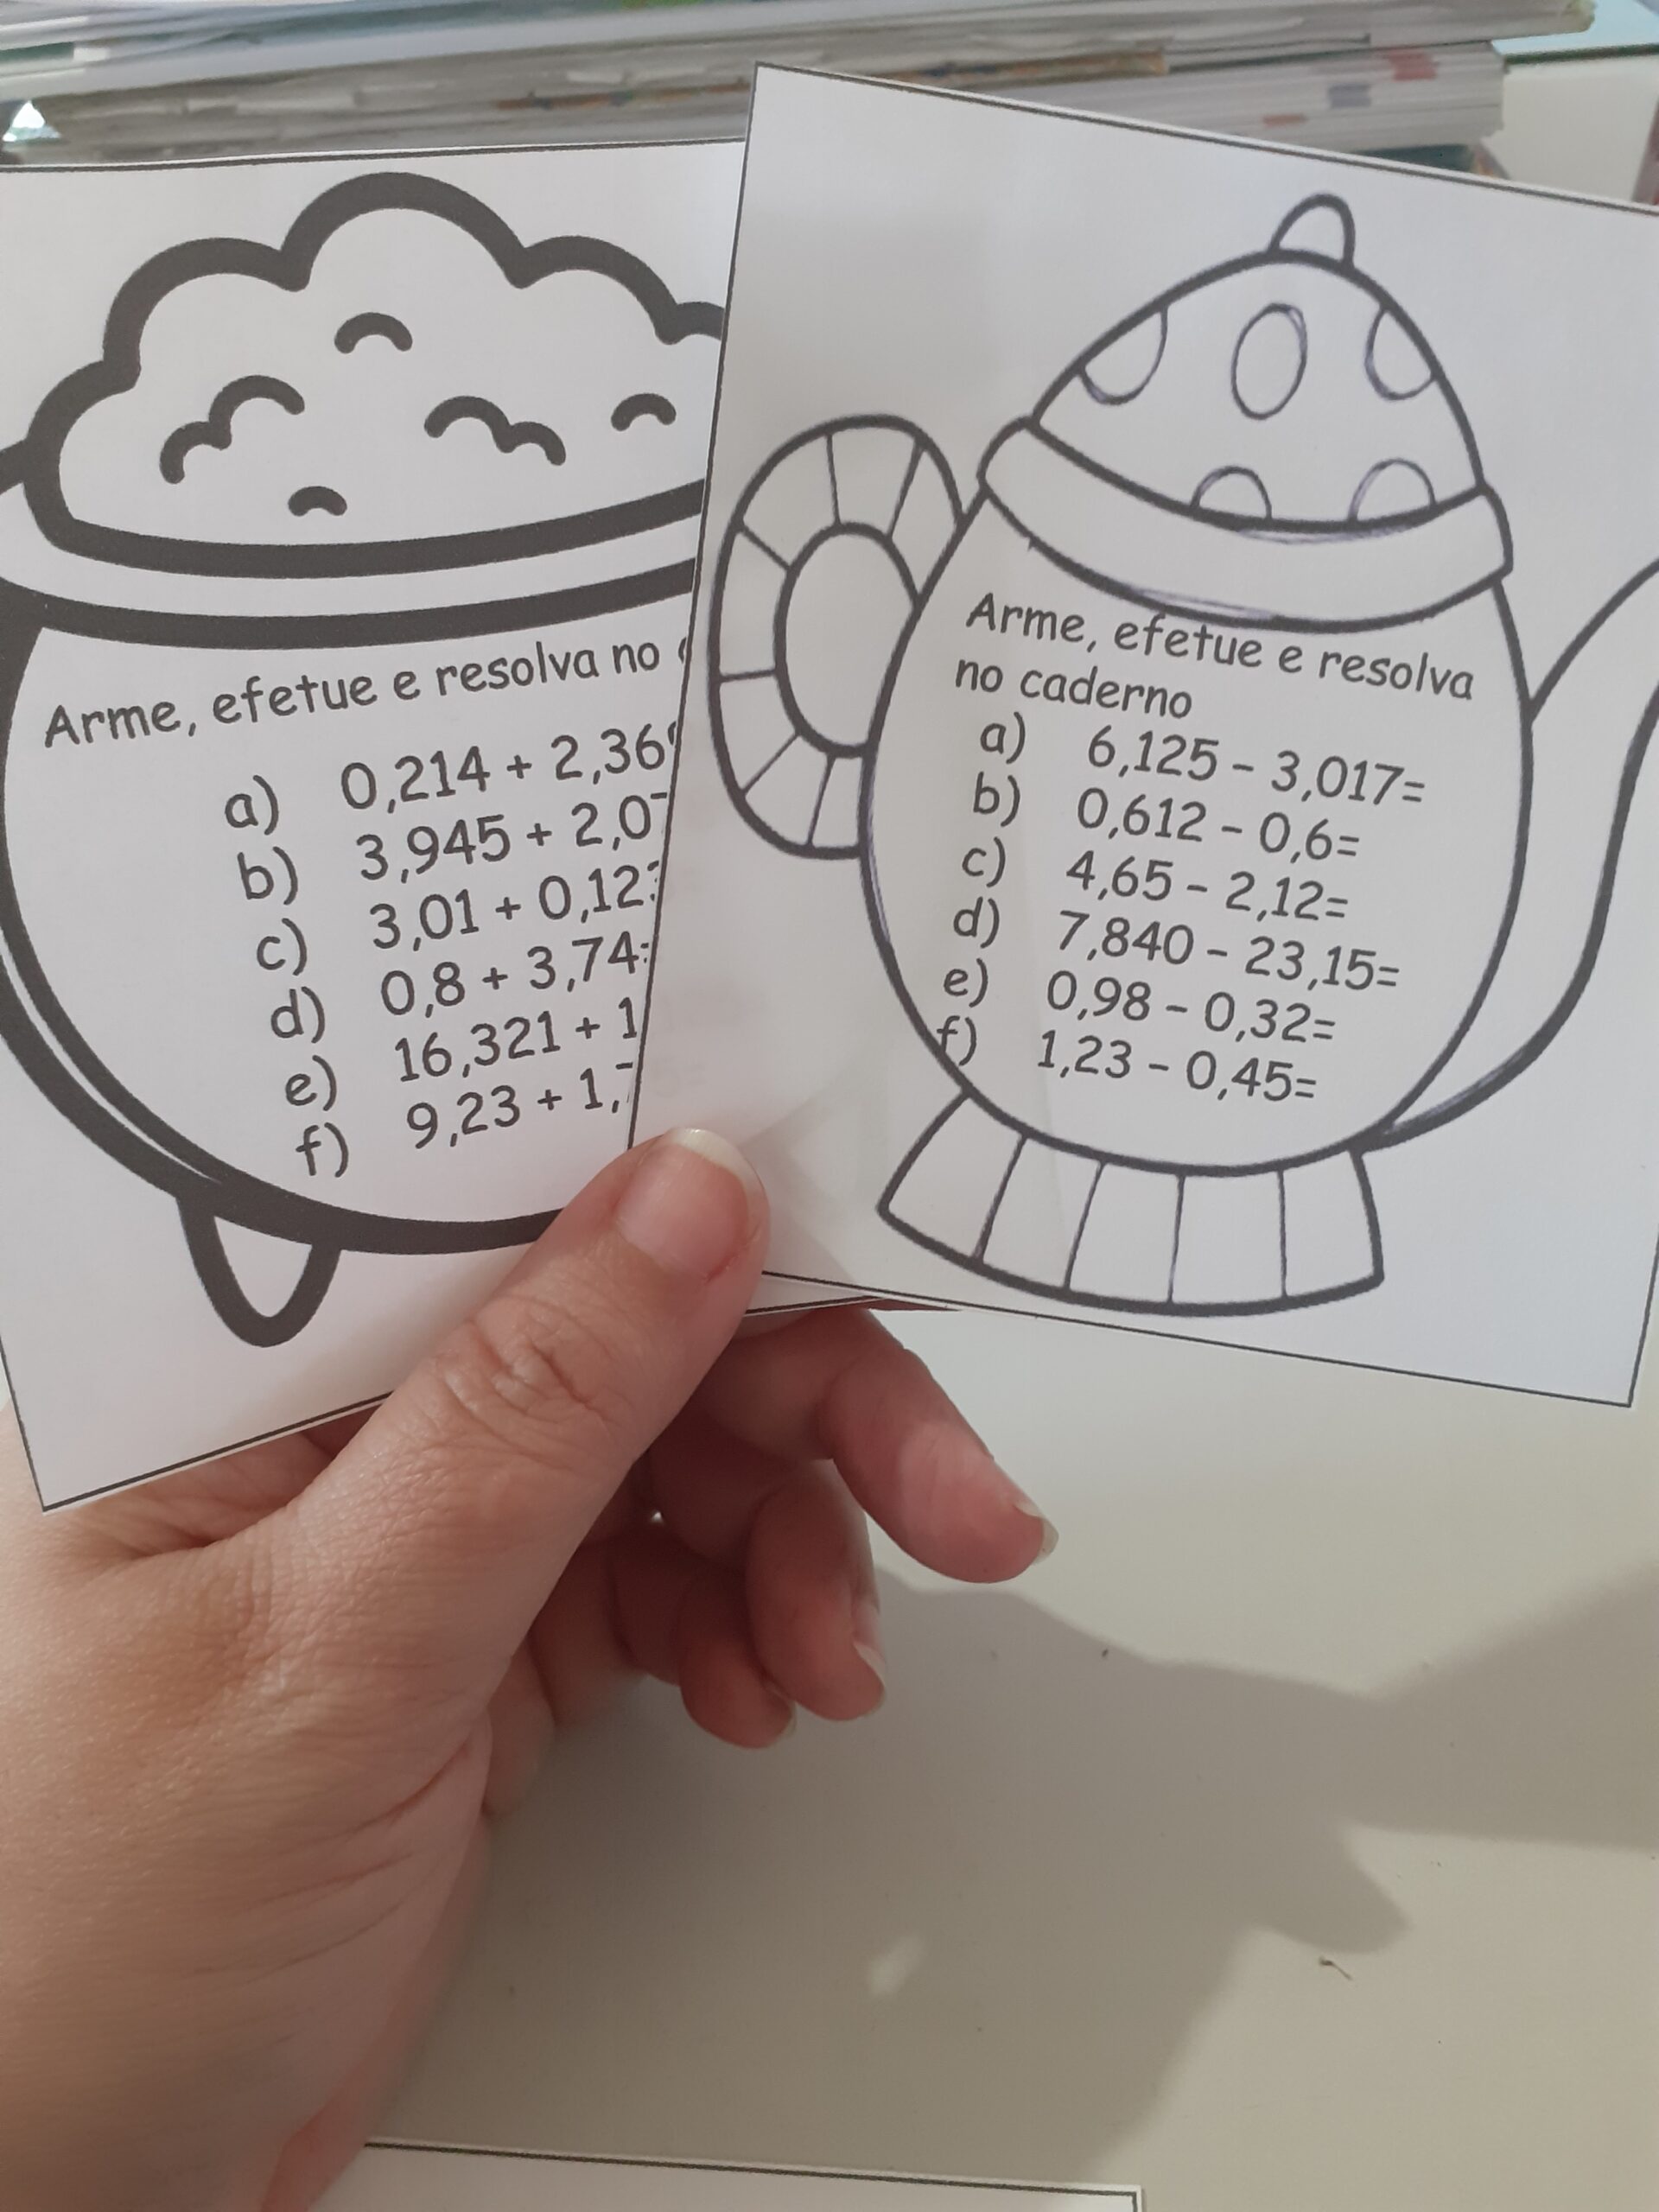 Arme, efetue e resolva no
a) 0,214 + 2,36
b) 3,945 + 2,0
c) 3,01 + 0,12
d) 0,8 + 3,74=
e) 16,321 + 1
f) 9,23 + 1,
Arme, efetue e resolva
no caderno
a) 6,125 - 3,017=
b) 0,612 - 0,6=
c) 4,65 - 2,12=
d) 7,840 - 23,15=
e) 0,98 - 0,32=
f) 1,23 - 0,45=